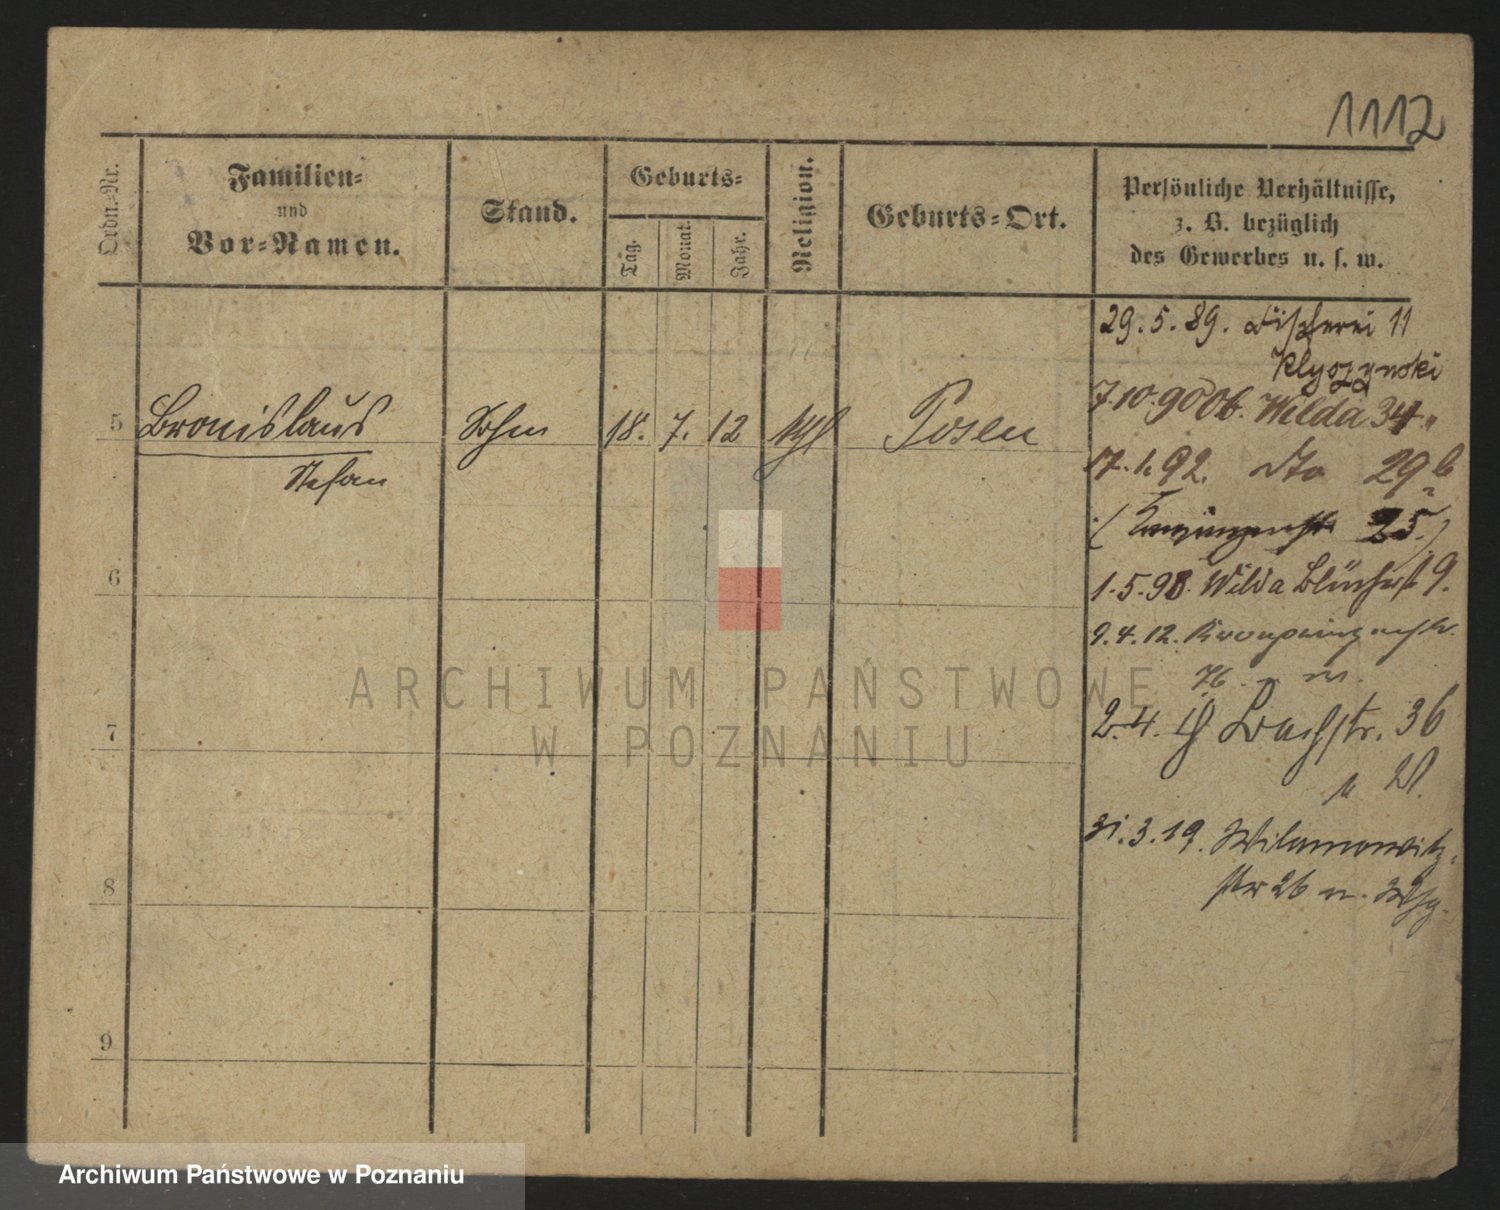 1112
Ordn.-Nr.
Familien-
und
Vor-Namen.
Stand.
Geburts-
Tag.
Monat.
Jahr.
Religion.
Geburts-Ort.
Persönliche Verhältnisse,
z. B. bezüglich
des Gewerbes u. s. w.
29.5.89. Fischerei 11
Klyszynski
5 Bronislaus Sohn 18. 7. 12 kth Posen
Stefan
7.10.90 Ob. Wilda 34
17.1.92. dto 29b
25.)
6
1.5.98. Wilda Blücherst 9.
9.4.12. Kronprinzenstr.
76
7
2.4. Bachstr. 36
31.3.19. Wilamowitz-
str 26
8
9
ARCHIWUM PAŃSTWOWE
W POZNANIU
Archiwum Państwowe w Poznaniu